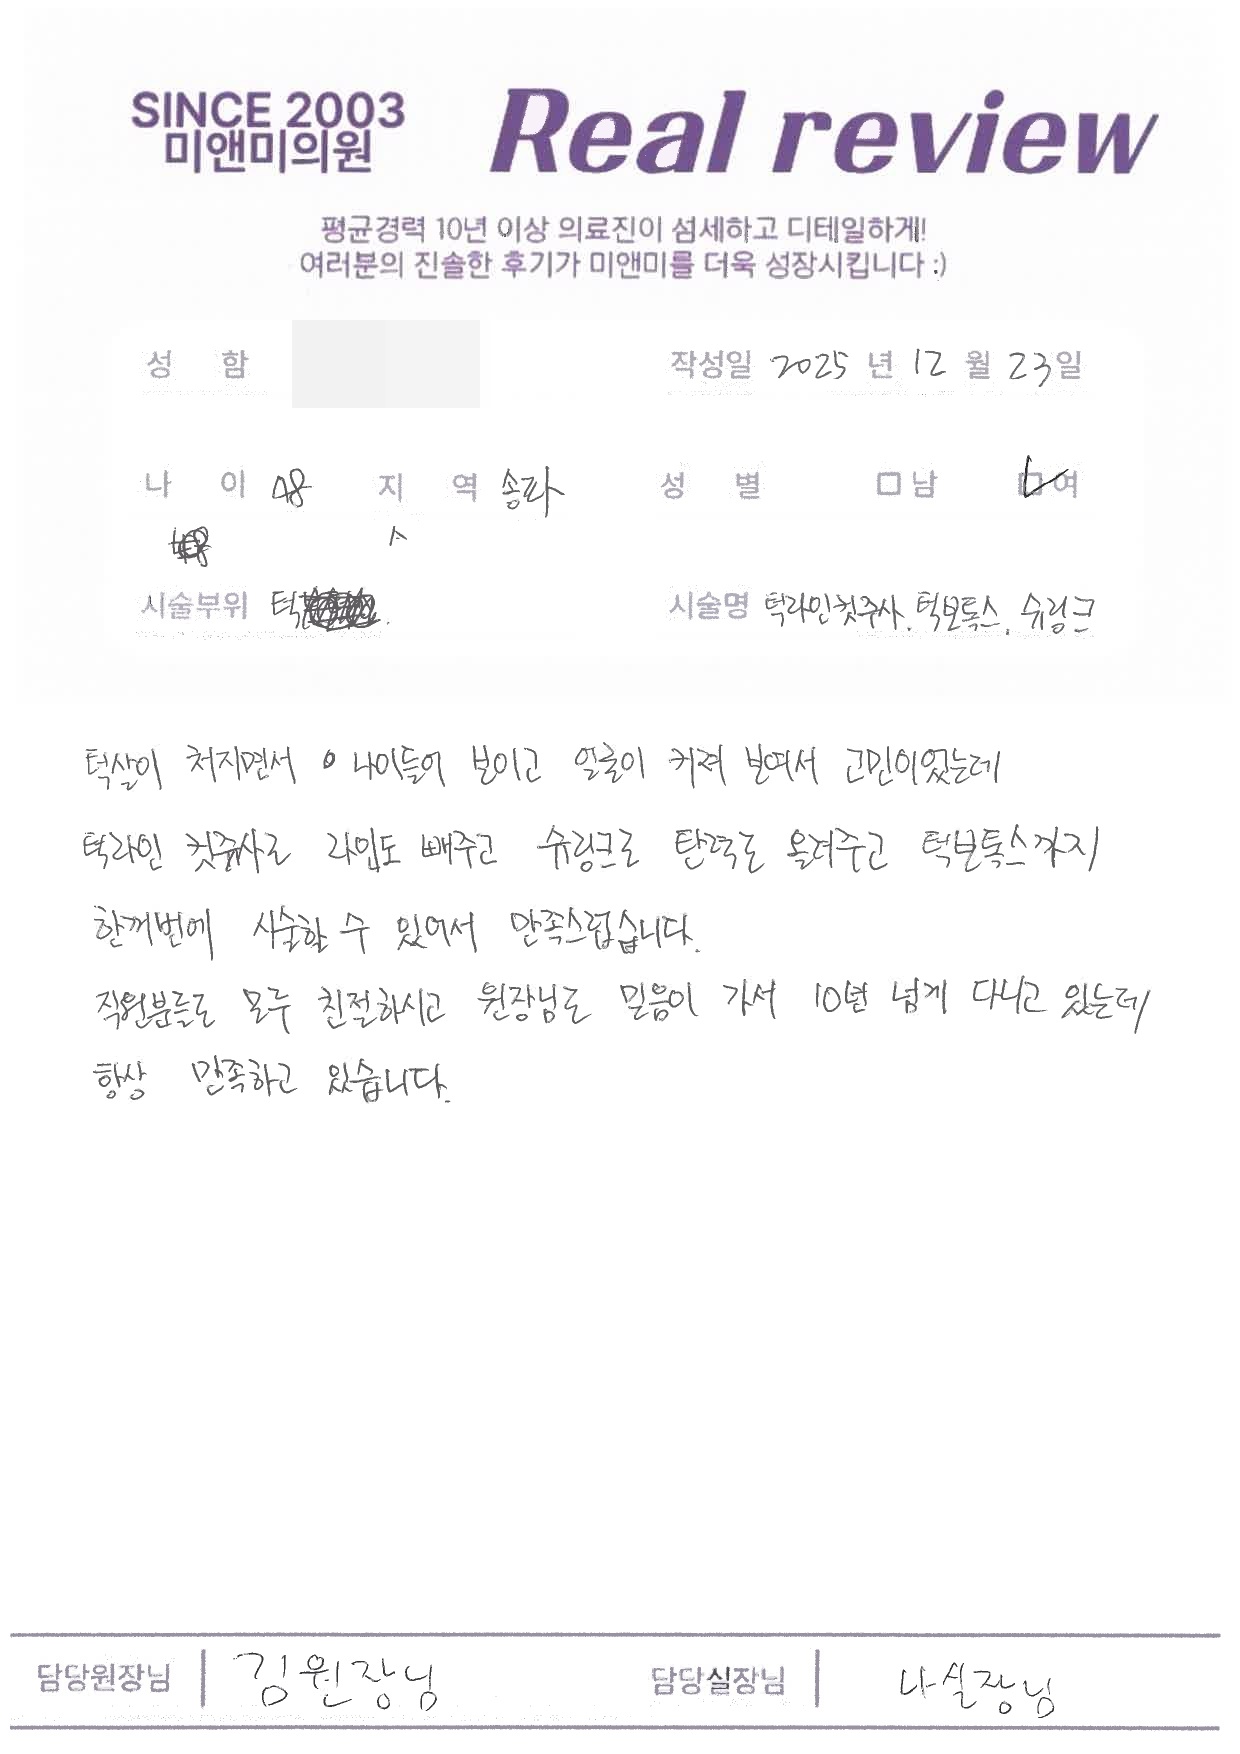 SINCE 2003
미앤미의원
Real review
평균경력 10년 이상 의료진이 섬세하고 디테일하게!
여러분의 진솔한 후기가 미앤미를 더욱 성장시킵니다 :)
성 함 작성일 2025 년 12 월 23일
나 이 48 지 역 송파 성 별 □남 □여
시술부위 턱 시술명 턱라인컷주사. 턱보톡스. 슈링크
턱살이 처지면서 나이들어 보이고 얼굴이 커져 보여서 고민이었는데
턱라인 컷쥬사로 라인도 빼주고 슈링크로 탄력도 올려주고 턱보톡스까지
한꺼번에 시술할 수 있어서 만족스럽습니다.
직원분들도 모두 친절하시고 원장님도 믿음이 가서 10년 넘게 다니고 있는데
항상 만족하고 있습니다.
담당원장님 김원장님 담당실장님 나실장님